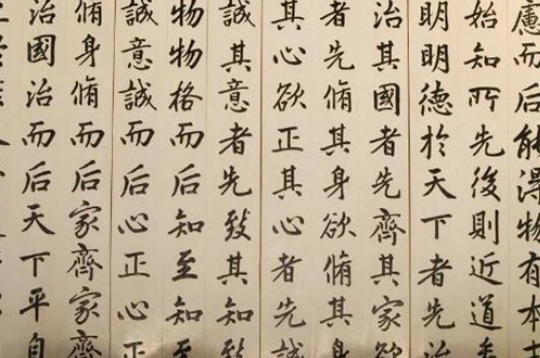 慮而后能得物有本末
始知所先後則近道矣
明明德於天下者先治
治其國者先齊其家欲
者先脩其身欲脩其身
其心欲正其心者先誠
誠其意者先致其知致
物物格而后知至知至
誠意誠而后心正心正
脩身脩而后家齊家齊
治國治而后天下平自